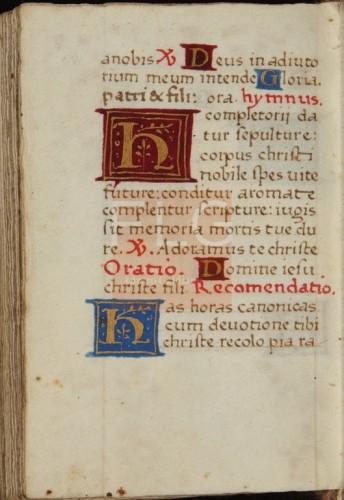 anobis ℣ Deus in adiuto
rium meum intende Gloria.
patri & fili: ora. hymnus.
H completorii da
tur sepulture:
corpus christi
nobile spes vite
future: conditur aromate
complentur scripture: iugis
sit memoria mortis tue du
re. ℣. Adoramus te christe
Oratio. Domine iesu
christe fili Recomendatio.
Has horas canonicas
cum devotione tibi
christe recolo pia ra